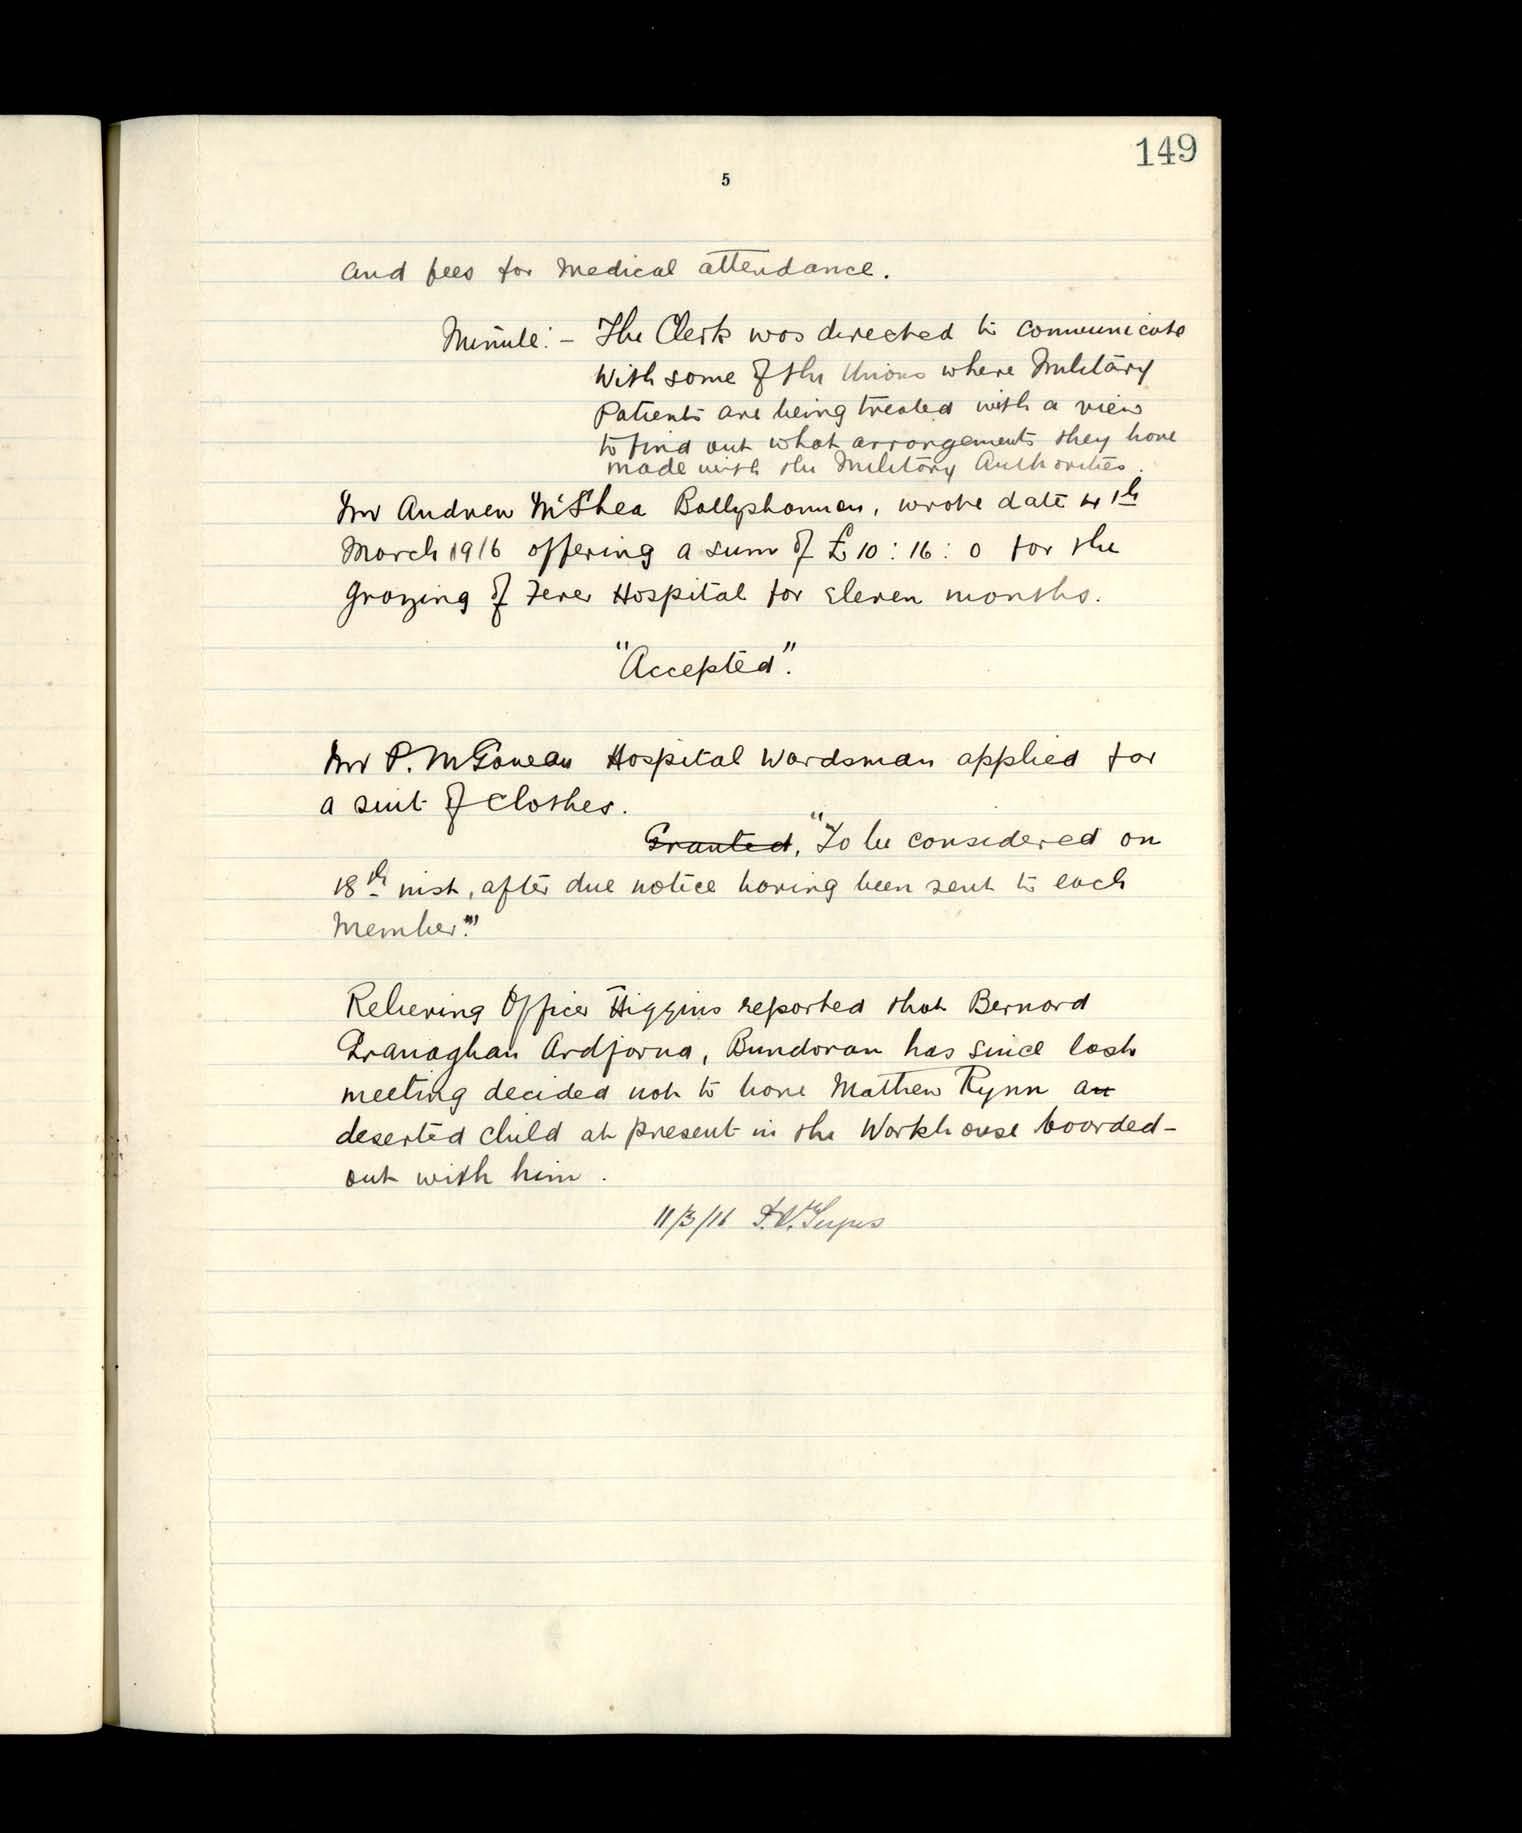 149
5
and fees for Medical attendance.
Minute:- The Clerk was directed to communicate
with some of the Unions where Military
Patients are being treated with a view
to find out what arrangements they have
made with the Military Authorities.
Mr Andrew McShea Ballyshannon, wrote date 4th
March 1916 offering a sum of £10:16:0 for the
grazing of Fever Hospital for eleven months.
"Accepted".
Mr P. McGowan Hospital Wardsman applied for
a suit of clothes.
Granted, "To be considered on
18th inst, after due notice having been sent to each
Member."
Relieving Officer Higgins reported that Bernard
Granaghan Ardfarna, Bundoran has since last
meeting decided not to have Matthew Rynn an
deserted child at present in the Workhouse boarded-
out with him.
11/3/16